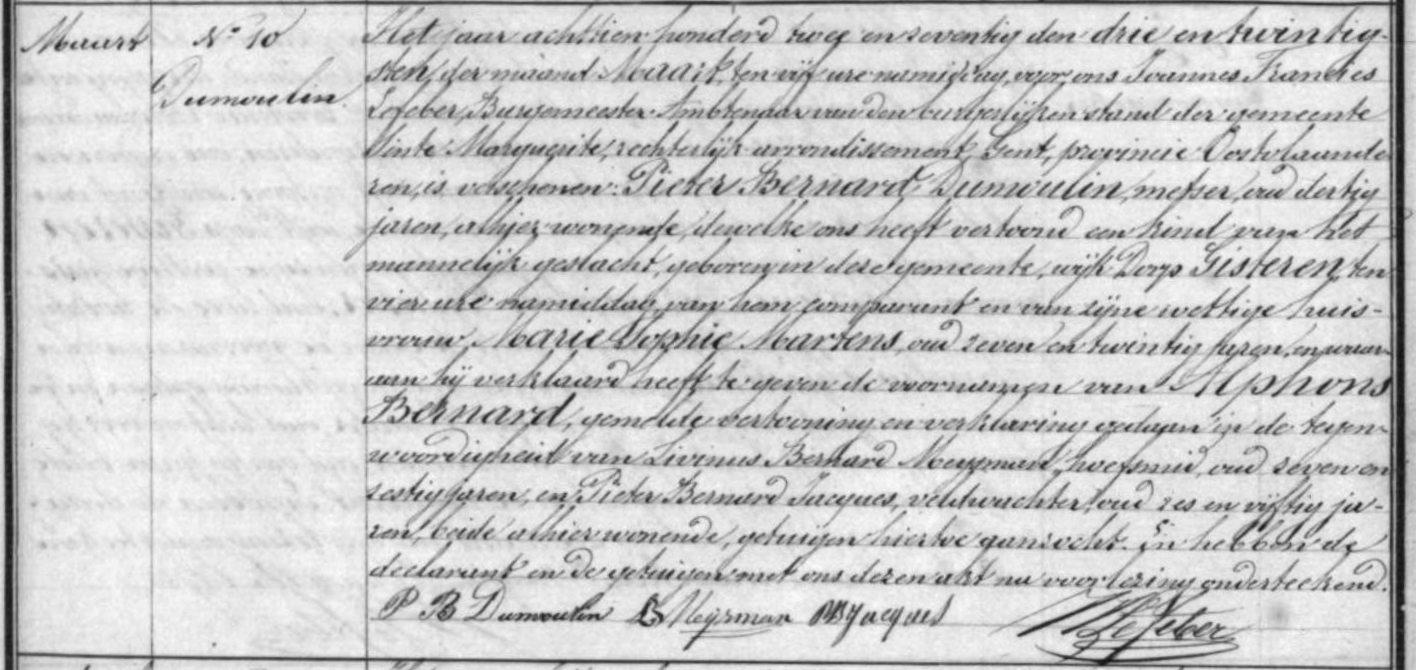 Maart
N° 10
Dumoulin
Het jaar achttien honderd twee en zeventig den drie en twintig-
sten, der maand Maart, ten vijf ure namiddag, voor ons Joannes Francies
Lefeber, Burgemeester Ambtenaar van den burgerlijken stand der gemeente
Sinte Marguerite, rechterlijk arrondissement Gent, provincie Oostvlaande-
ren, is verschenen: Pieter Bernard Dumoulin, metser, oud dertig
jaren, alhier wonende, dewelke ons heeft vertoond een kind van het
mannelijk geslacht, geboren in deze gemeente, wijk Dorp Gisteren, ten
vier ure namiddag, van hem comparant en van zijne wettige huis-
vrouw, Marie Sophie Martens, oud zeven en twintig jaren, en waar-
aan hij verklaard heeft te geven de voornamen van Alphons
Bernard, gemelde vertooning en verklaring gedaan in de tegen-
woordigheid van Livinus Bernard Meyrman, hoefsmid, oud zeven en
zestig jaren, en Pieter Bernard Jacques, veldwachter, oud zes en vijftig ja-
ren, beide alhier wonende, getuigen hiertoe aanzocht. En hebben de
declarant en de getuigen met ons dezen akt na voorlezing onderteekend.
P B Dumoulin LB Meyrman PBJacques Lefeber